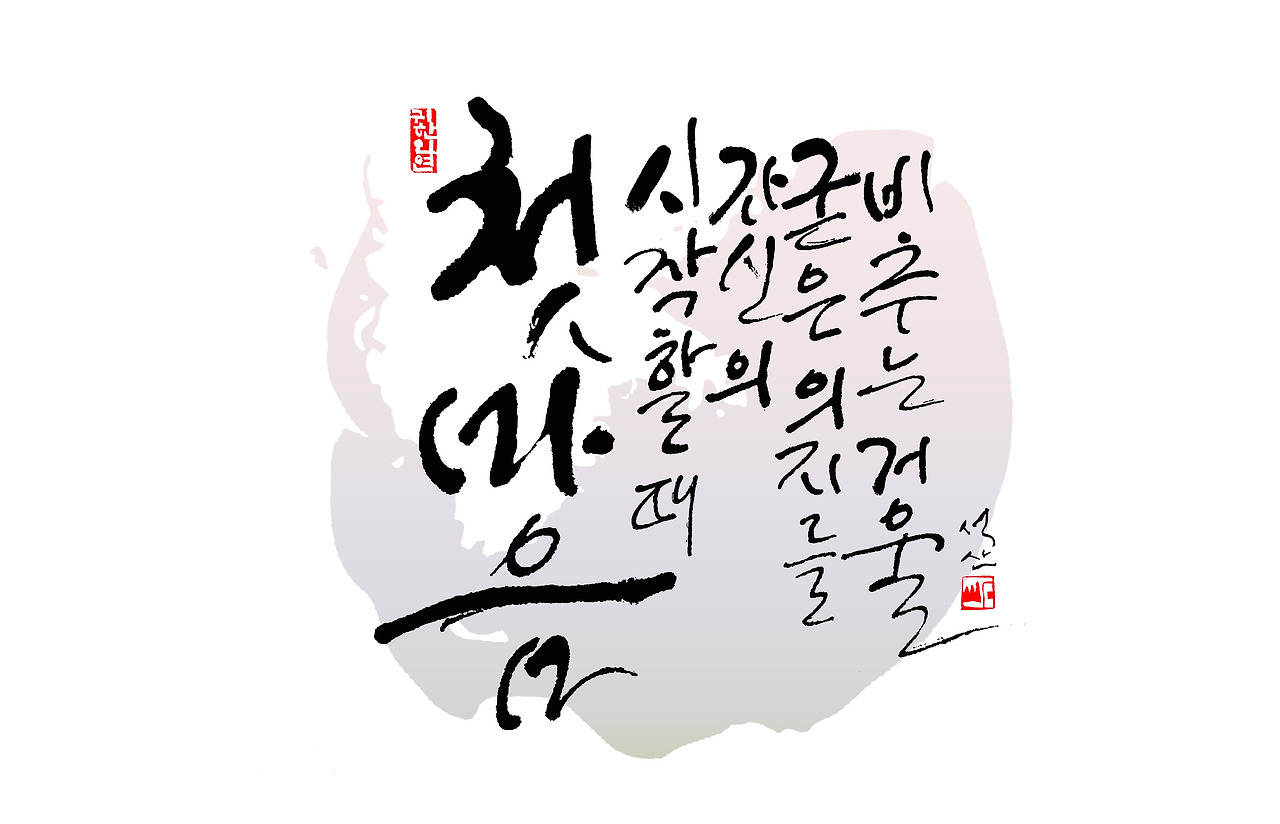 첫마음
시작할 때
자신의
굳은 의지를
비추는 거울
석산